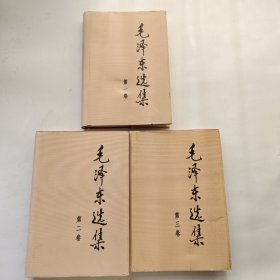 毛泽东选集
第一卷
毛泽东选集
第二卷
毛泽东选集
第三卷